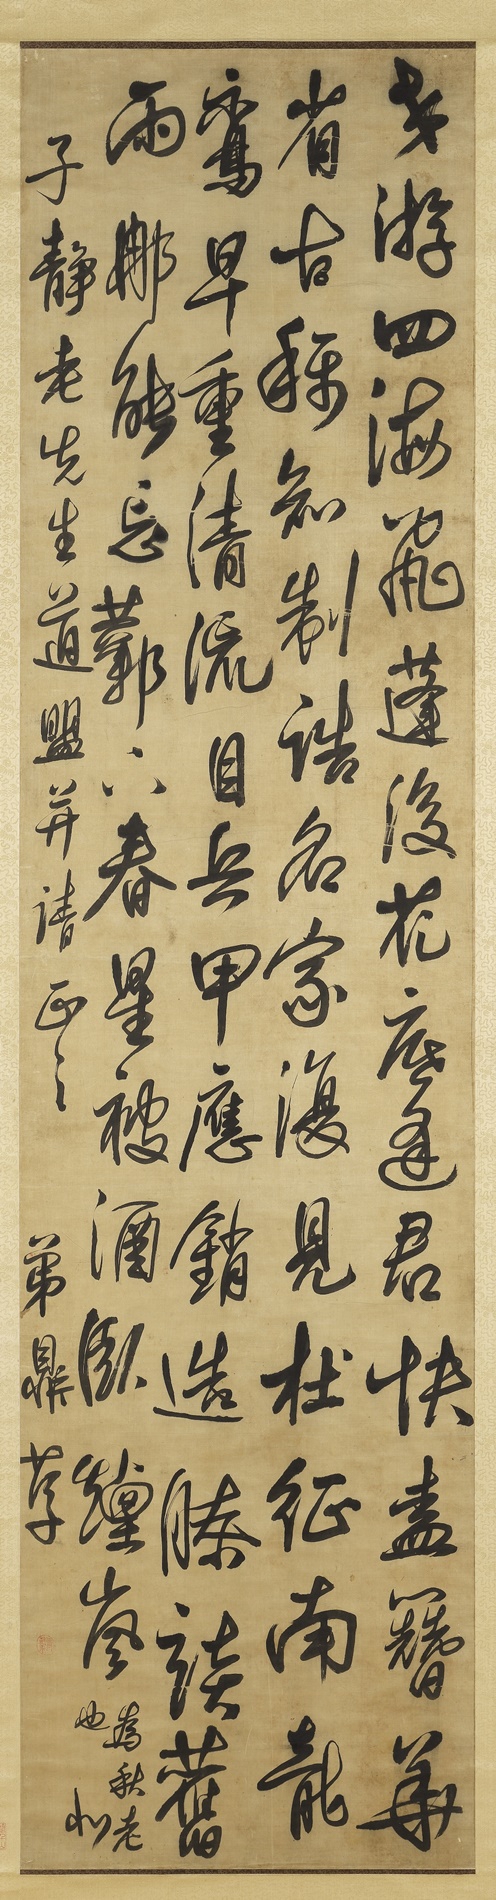 游四海飛蓬後花底逢君快盍簪華
省古稱知制誥名家復見杜征南龍
鸞早重清流目兵甲應銷造膝談舊
雨那能忘鄴下春星被酒臥煙嵐 為秋老也 似
子靜老先生道盟并請正之 弟鼎孳